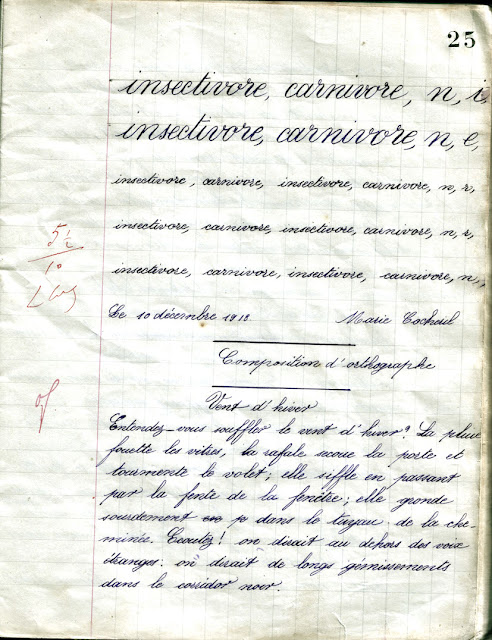 25
insectivore, carnivore, n, i,
insectivore, carnivore, n, e,
insectivore, carnivore, insectivore, carnivore, n, r,
insectivore, carnivore, insectivore, carnivore, n, r,
insectivore, carnivore, insectivore, carnivore, n,
5 1/2
10
Le 10 décembre 1912 Marie Cocheril
Composition d'orthographe
Vent d'hiver
Entendez-vous souffler le vent d'hiver? La pluie
fouette les vitres, la rafale secoue la porte et
tourmente le volet; elle siffle en passant
par la fente de la fenêtre; elle gronde
sourdement dans le tuyau de la che-
minée. Ecoutez! on dirait au dehors des voix
étranges. on dirait de longs gémissements
dans le corridor noir.